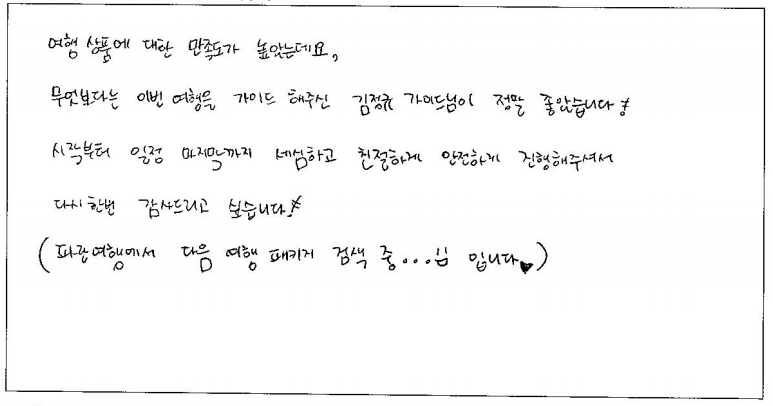 여행 상품에 대한 만족도가 높았는데요,
무엇보다는 이번 여행을 가이드 해주신 김정규 가이드님이 정말 좋았습니다!
시작부터 일정 마지막까지 세심하고 친절하게 안전하게 진행해주셔서
다시한번 감사드리고 싶습니다!
(파란여행에서 다음 여행 패키지 검색 중... 입니다♥)